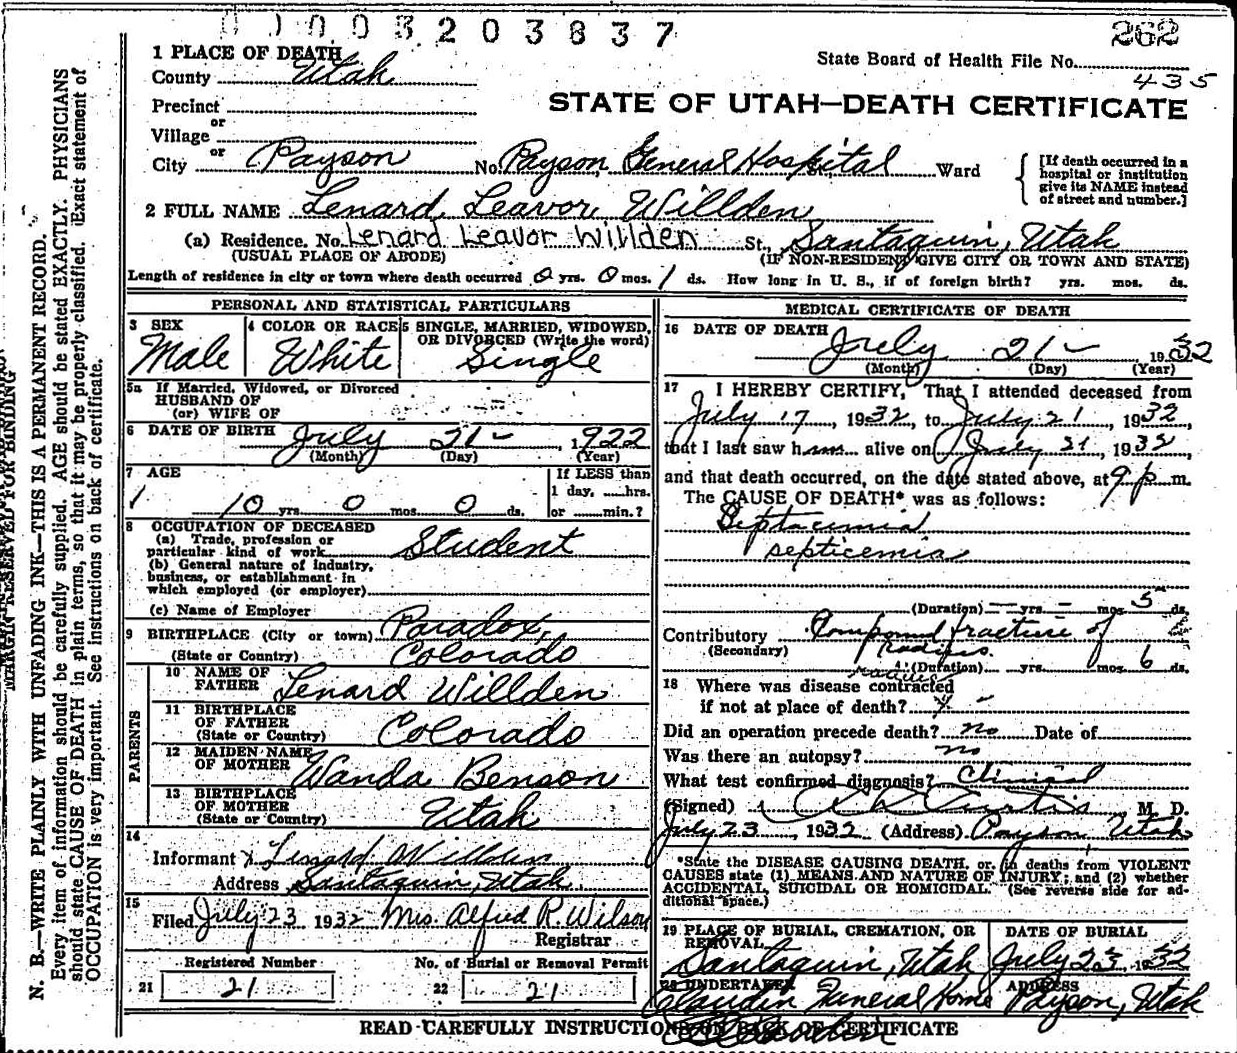 0 1 0 0 3 2 0 3 8 3 7
262
1 PLACE OF DEATH
State Board of Health File No.
County Utah
435
Precinct
STATE OF UTAH—DEATH CERTIFICATE
or
Village
or
City Payson No. Payson General Hospital Ward
[If death occurred in a
hospital or institution
give its NAME instead
of street and number.]
2 FULL NAME Lenard Leavor Willden
(a) Residence. No. Lenard Leavor Willden St., Santaquin, Utah
(USUAL PLACE OF ABODE) (IF NON-RESIDENT GIVE CITY OR TOWN AND STATE)
Length of residence in city or town where death occurred 0 yrs. 0 mos. 1 ds. How long in U. S., if of foreign birth? yrs. mos. ds.
PERSONAL AND STATISTICAL PARTICULARS
3 SEX
Male
4 COLOR OR RACE
White
5 SINGLE, MARRIED, WIDOWED,
OR DIVORCED (Write the word)
Single
5a If Married, Widowed, or Divorced
HUSBAND OF
(or) WIFE OF
6 DATE OF BIRTH July 21- 1922
(Month) (Day) (Year)
7 AGE
If LESS than
1 day, hrs.
10 yrs. 0 mos. 0 ds.
or min.?
8 OCCUPATION OF DECEASED
(a) Trade, profession or
particular kind of work Student
(b) General nature of industry,
business, or establishment in
which employed (or employer)
(c) Name of Employer
9 BIRTHPLACE (City or town) Paradox,
(State or Country) Colorado
PARENTS
10 NAME OF
FATHER Lenard Willden
11 BIRTHPLACE
OF FATHER
(State or Country) Colorado
12 MAIDEN NAME
OF MOTHER Wanda Benson
13 BIRTHPLACE
OF MOTHER
(State or Country) Utah
14
Informant x Lenard Willden
Address Santaquin, Utah
15
Filed July 23 1932 Mrs. Alfred R. Wilson
Registrar
Registered Number No. of Burial or Removal Permit
21 21 22 21
MEDICAL CERTIFICATE OF DEATH
16 DATE OF DEATH
July 21- 1932
(Month) (Day) (Year)
17 I HEREBY CERTIFY, That I attended deceased from
July 17, 1932, to July 21, 1932,
that I last saw him alive on July 21, 1932,
and that death occurred, on the date stated above, at 9 p. m.
The CAUSE OF DEATH* was as follows:
Septacemia
septicemia
(Duration) yrs. mos. 5 ds.
Contributory Compound fracture of
(Secondary) radius
radius
(Duration) yrs. mos. 6 ds.
18 Where was disease contracted
if not at place of death?
Did an operation precede death? no Date of
Was there an autopsy? no
What test confirmed diagnosis? Clinical
(Signed) Curtis M. D.
July 23, 1932 (Address) Payson Utah
*State the DISEASE CAUSING DEATH, or, in deaths from VIOLENT
CAUSES state (1) MEANS AND NATURE OF INJURY; and (2) whether
ACCIDENTAL, SUICIDAL OR HOMICIDAL. (See reverse side for ad-
ditional space.)
19 PLACE OF BURIAL, CREMATION, OR
REMOVAL
Santaquin, Utah
DATE OF BURIAL
July 23, 1932
20 UNDERTAKER
Claudin Funeral Home
ADDRESS
Payson, Utah
READ CAREFULLY INSTRUCTIONS ON BACK OF CERTIFICATE
MARGIN RESERVED FOR BINDING
N. B.—WRITE PLAINLY WITH UNFADING INK—THIS IS A PERMANENT RECORD.
Every item of information should be carefully supplied. AGE should be stated EXACTLY. PHYSICIANS
should state CAUSE OF DEATH in plain terms, so that it may be properly classified. Exact statement of
OCCUPATION is very important. See instructions on back of certificate.